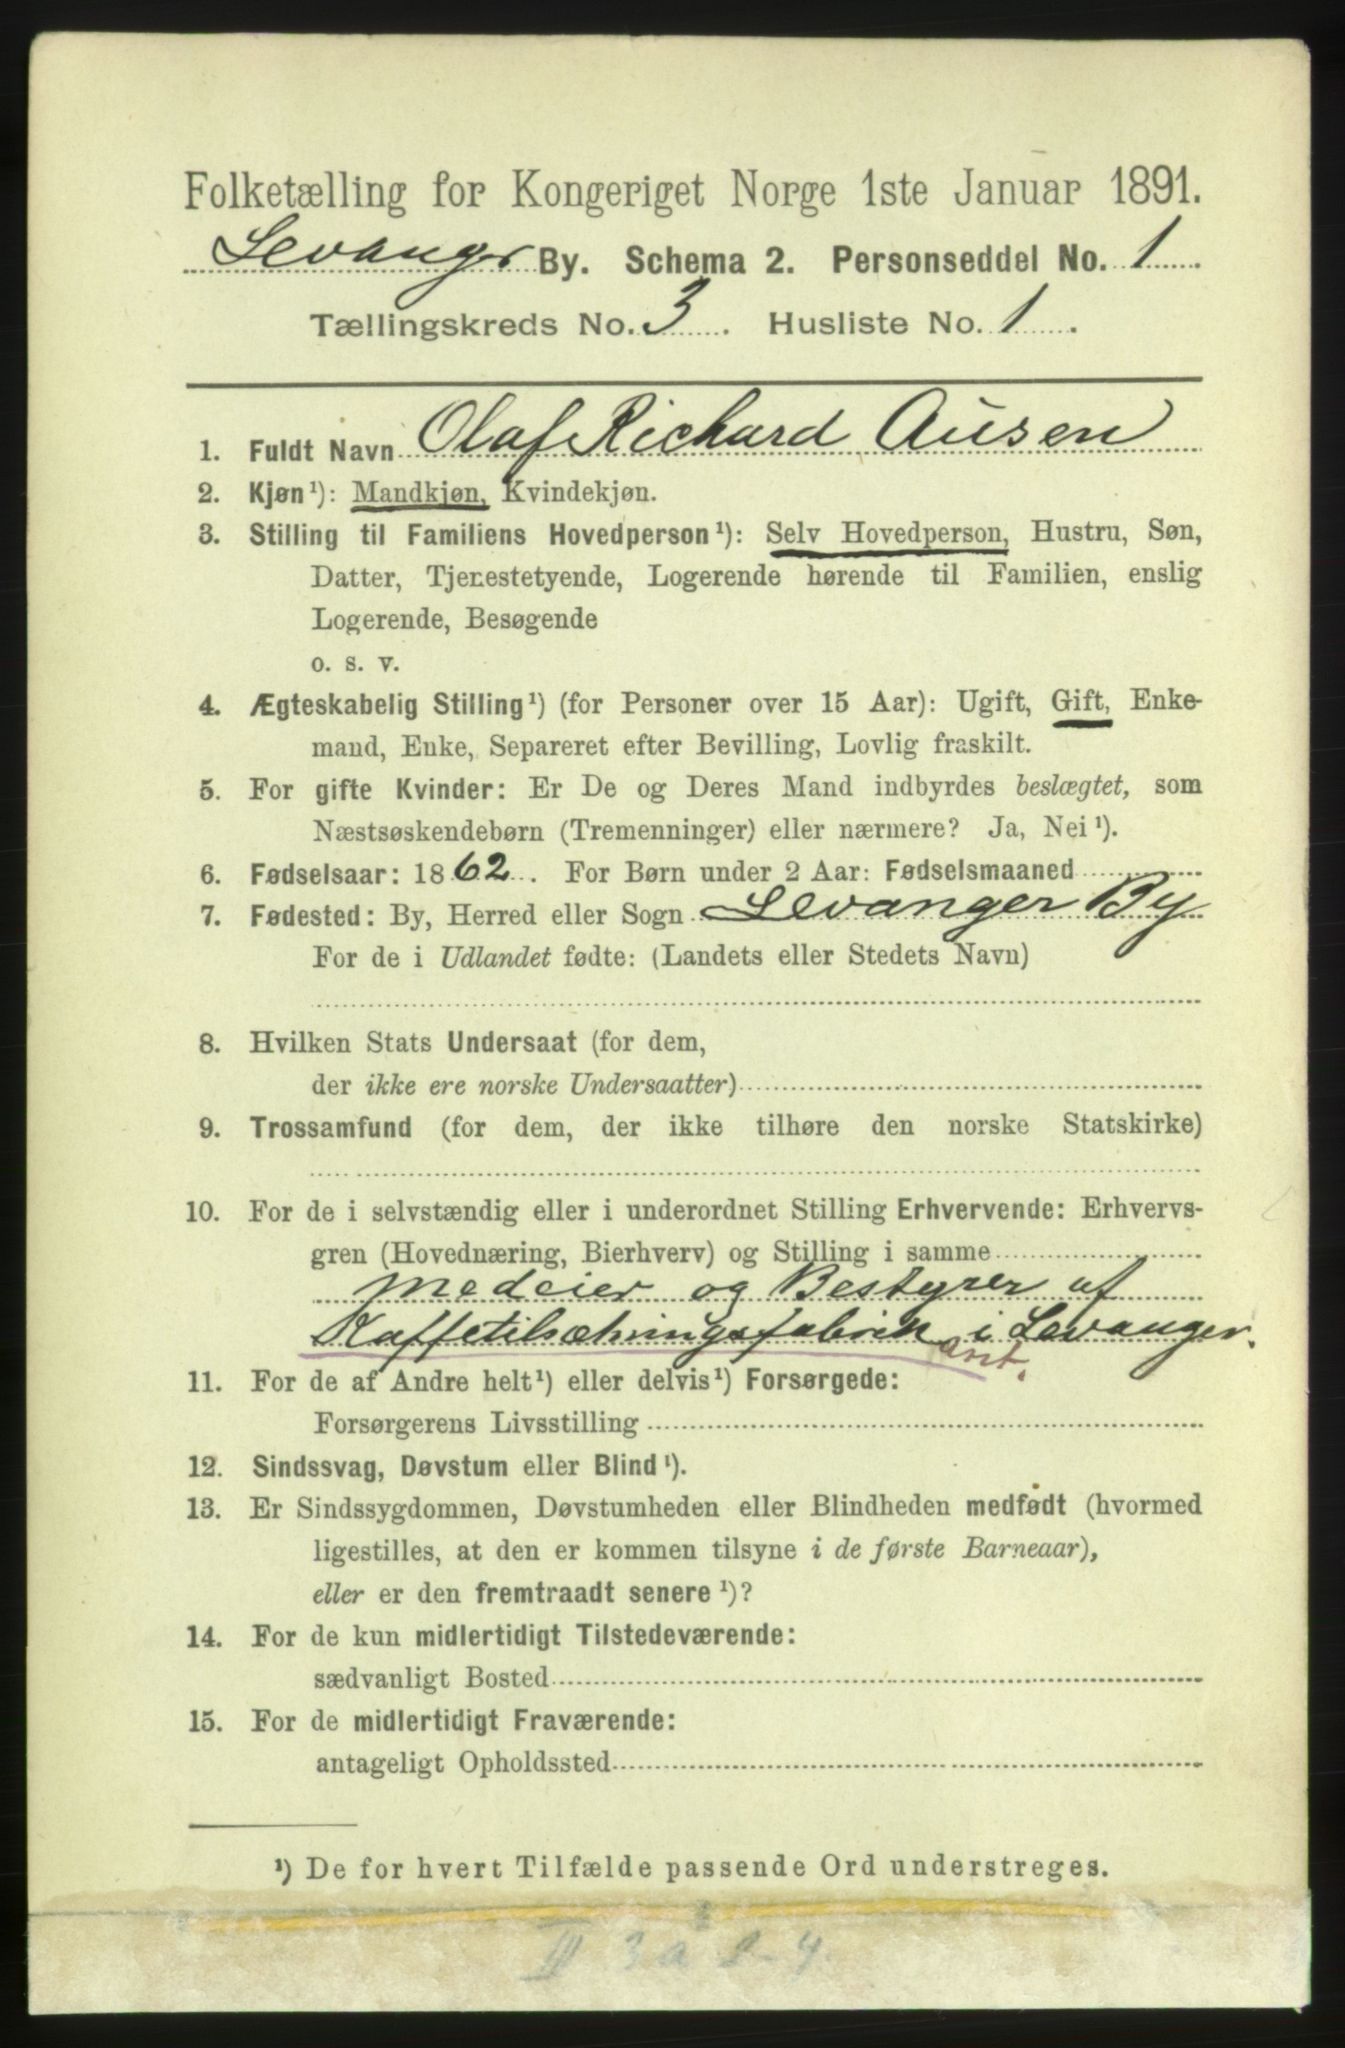 Folketælling for Kongeriget Norge 1ste Januar 1891.
Levanger By. Schema 2. Personseddel No. 1
Tællingskreds No. 3. Husliste No. 1.
1. Fuldt Navn Olaf Richard Ausen
2. Kjøn¹): Mandkjøn, Kvindekjøn.
3. Stilling til Familiens Hovedperson¹): Selv Hovedperson, Hustru, Søn,
Datter, Tjenestetyende, Logerende hørende til Familien, enslig
Logerende, Besøgende
o. s. v.
4. Ægteskabelig Stilling¹) (for Personer over 15 Aar): Ugift, Gift, Enke-
mand, Enke, Separeret efter Bevilling, Lovlig fraskilt.
5. For gifte Kvinder: Er De og Deres Mand indbyrdes beslægtet, som
Næstsøskendebørn (Tremenninger) eller nærmere? Ja, Nei¹).
6. Fødselsaar: 1862. For Børn under 2 Aar: Fødselsmaaned
7. Fødested: By, Herred eller Sogn Levanger By
For de i Udlandet fødte: (Landets eller Stedets Navn)
8. Hvilken Stats Undersaat (for dem,
der ikke ere norske Undersaatter)
9. Trossamfund (for dem, der ikke tilhøre den norske Statskirke)
10. For de i selvstændig eller i underordnet Stilling Erhvervende: Erhvervs-
gren (Hovednæring, Bierhverv) og Stilling i samme
Medeier og Bestyrer af
Kaffetilsætningsfabrik i Levanger.
ant.
11. For de af Andre helt¹) eller delvis¹) Forsørgede:
Forsørgerens Livsstilling
12. Sindssvag, Døvstum eller Blind¹).
13. Er Sindssygdommen, Døvstumheden eller Blindheden medfødt (hvormed
ligestilles, at den er kommen tilsyne i de første Barneaar),
eller er den fremtraadt senere¹)?
14. For de kun midlertidigt Tilstedeværende:
sædvanligt Bosted
15. For de midlertidigt Fraværende:
antageligt Opholdssted
¹) De for hvert Tilfælde passende Ord understreges.
III 3 a 2-4.